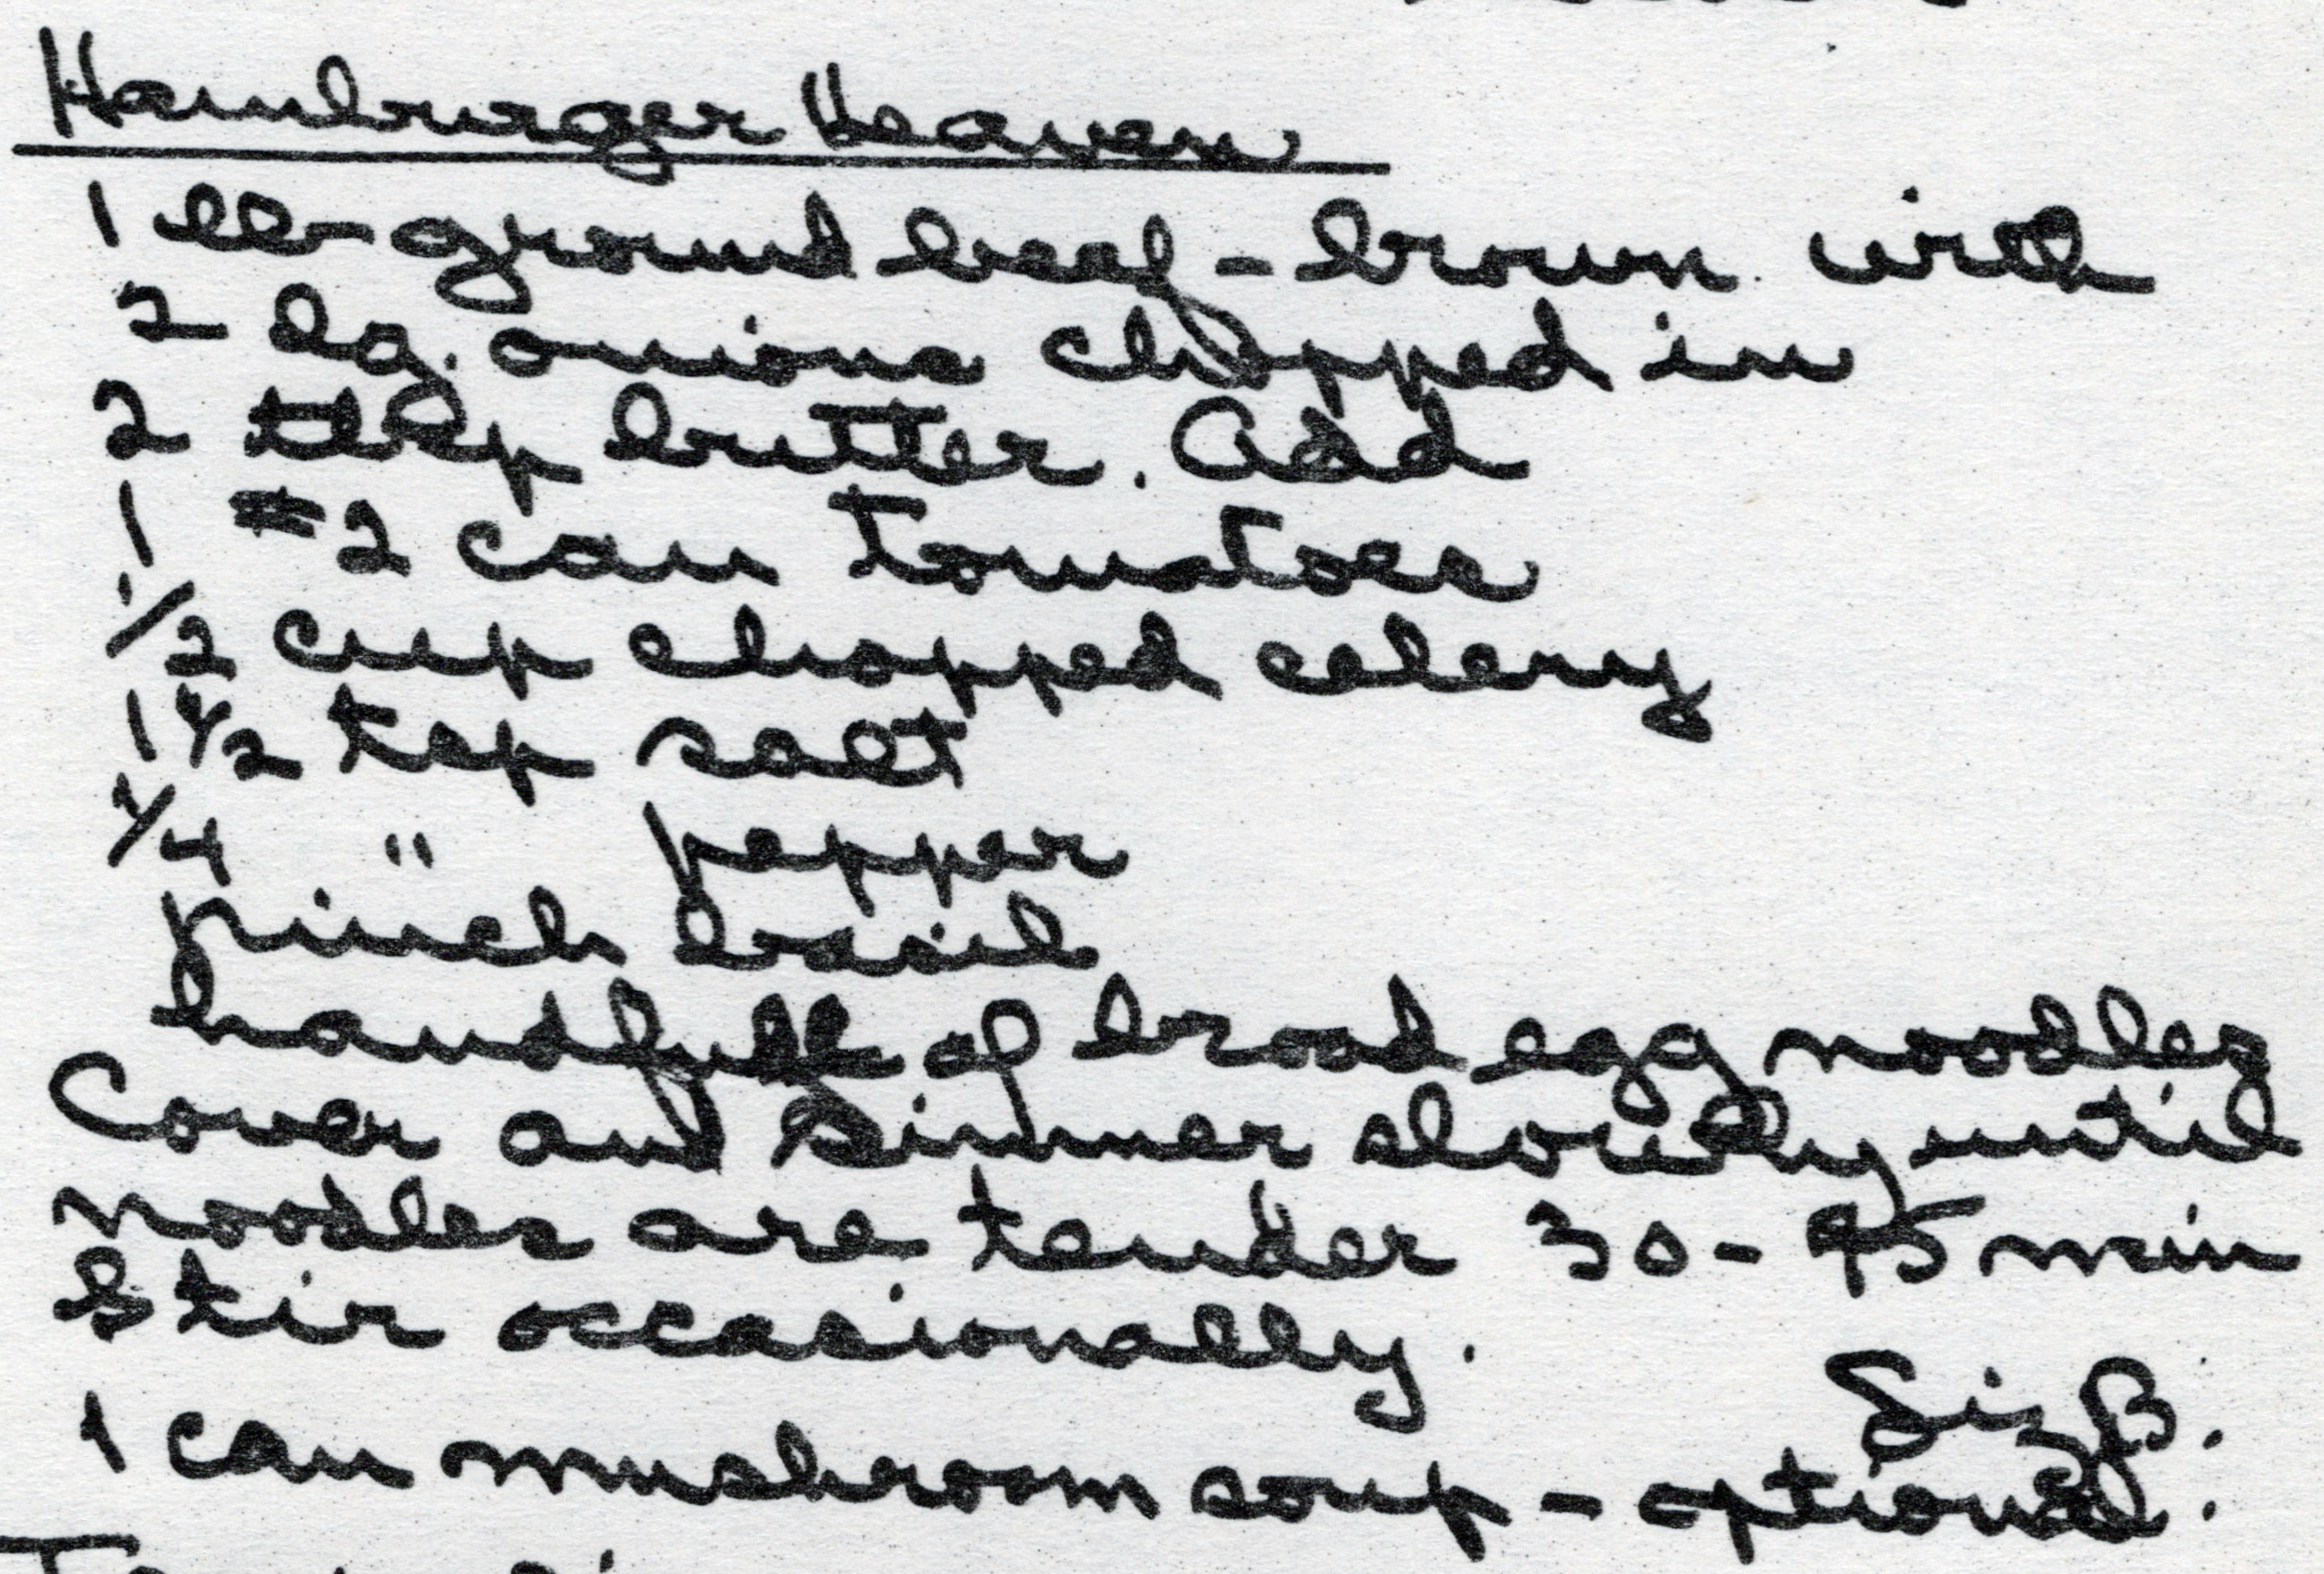 Hamburger Heaven
1 lb ground beef - brown with
2 lg. onions chopped in
2 tbsp butter. Add
1 #2 can tomatoes
1/2 cup chopped celery
1 1/2 tsp salt
1/4 " pepper
pinch basil
handfull of broad egg noodles
Cover and simmer slowly until
noodles are tender 30-45 min
Stir occasionally.
Liz B.
1 can mushroom soup - optional.